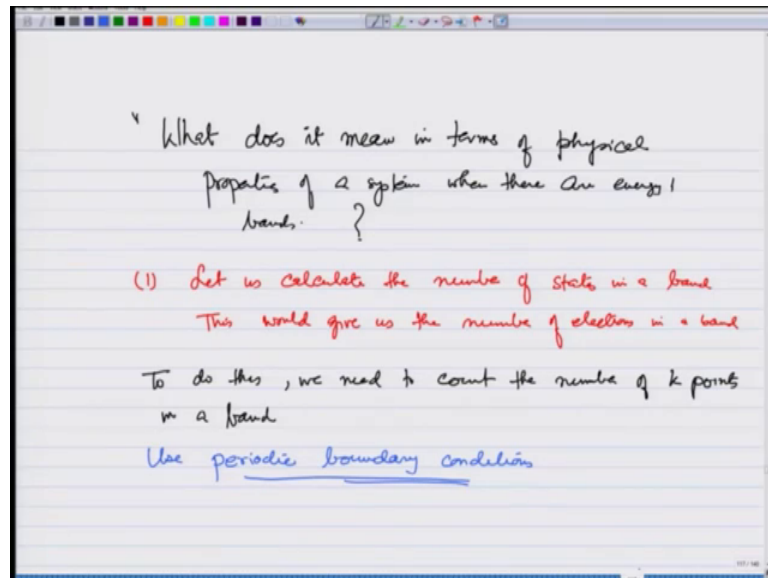 " What does it mean in terms of physical
properties of a system when there are energy
bands. ?
(1) Let us calculate the number of states in a band
This would give us the number of electrons in a band
To do this, we need to count the number of k points
in a band
Use periodic boundary conditions